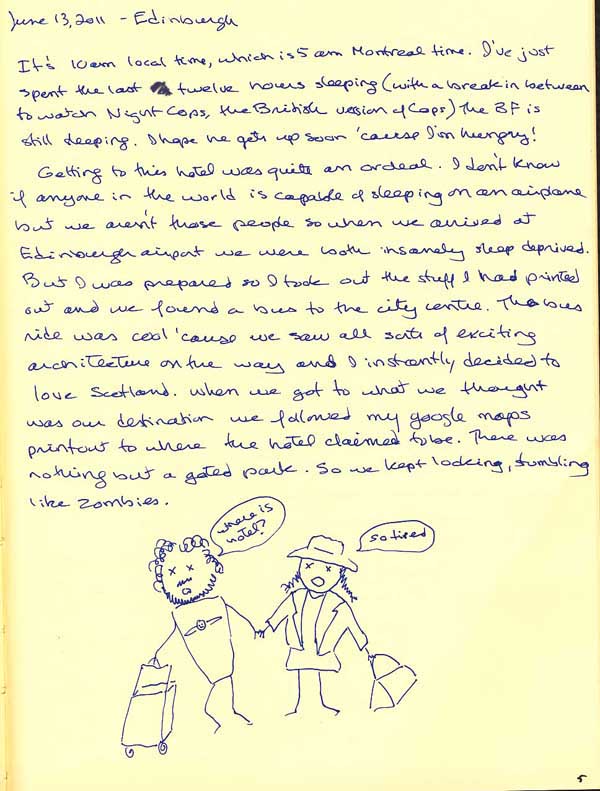 June 13, 2011 - Edinburgh
It's 10am local time, which is 5 am Montreal time. I've just
spent the last twelve hours sleeping (with a break in between
to watch Night Cops, the British version of Cops) The BF is
still sleeping. I hope he gets up soon 'cause I'm hungry!
Getting to this hotel was quite an ordeal. I don't know
if anyone in the world is capable of sleeping on an airplane
but we aren't those people so when we arrived at
Edinburgh airport we were both insanely sleep deprived.
But I was prepared so I took out the stuff I had printed
out and we found a bus to the city centre. The bus
ride was cool 'cause we saw all sorts of exciting
architecture on the way and I instantly decided to
love Scotland. When we got to what we thought
was our destination we followed my google maps
printout to where the hotel claimed to be. There was
nothing but a gated park. So we kept looking, stumbling
like zombies.
where is
hotel?
so tired
5